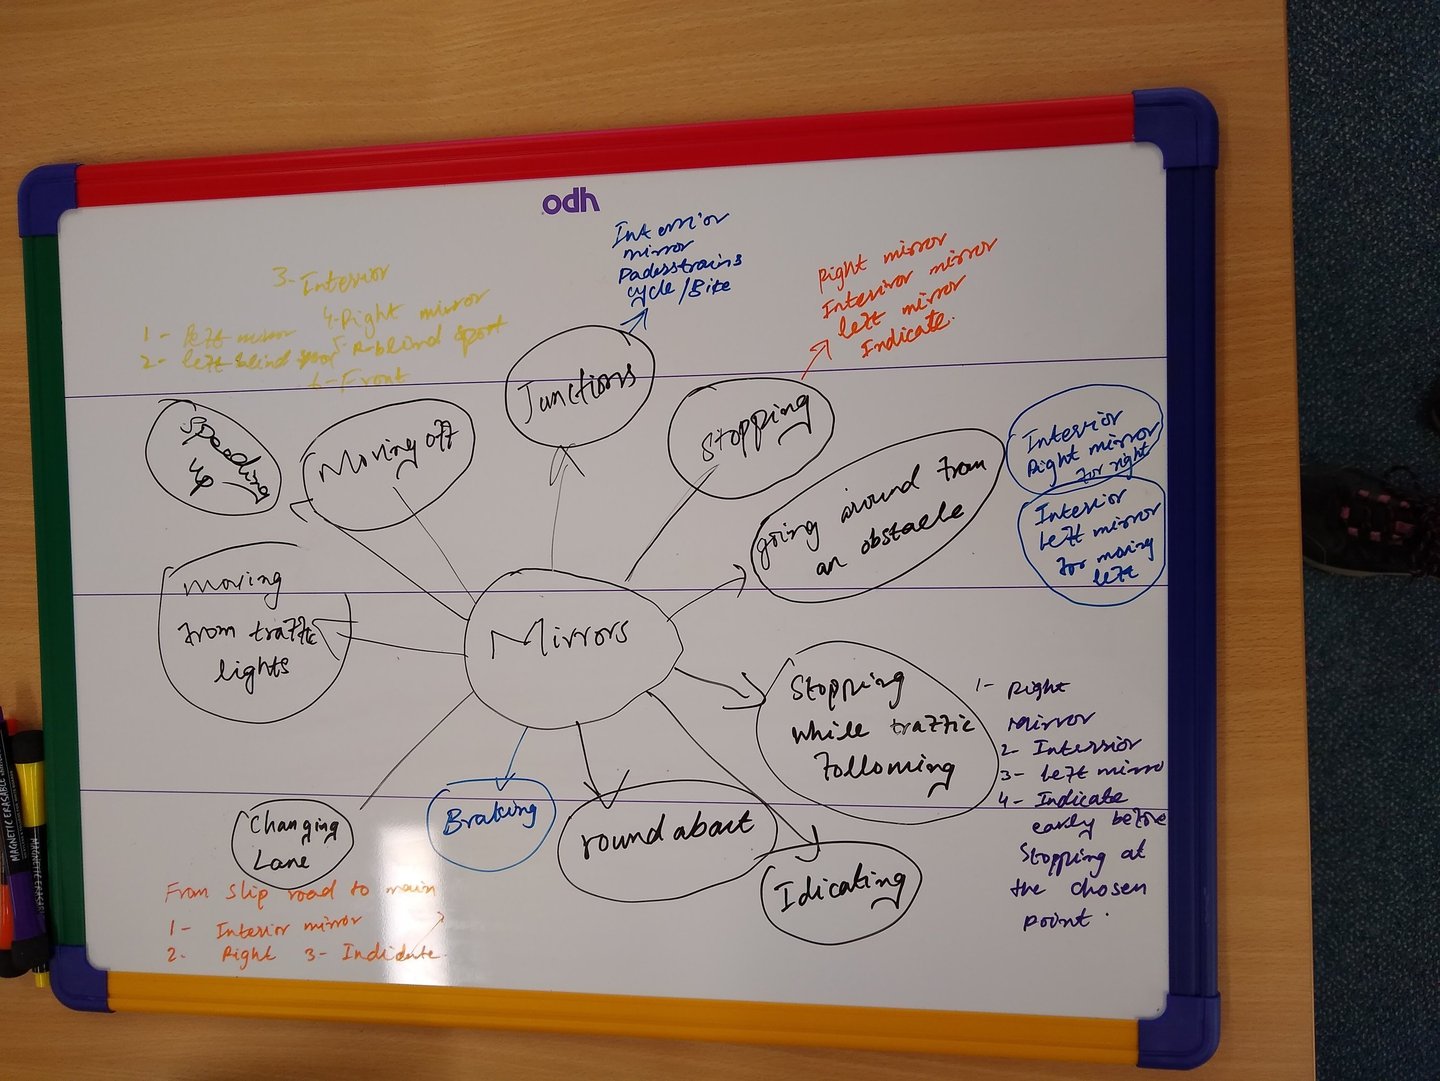 odh
Interrior
mirror
Padesstrains
cycle/Bite
Right mirror
Interiror mirror
left mirror
Indicate.
3- Interior
4- Right mirror
5- R-blind spost
6- Front
1- left mirror
2- left blind
Junctions
Stopping
Moving off
Speading
up
going around from
an obstacle
Interior
Right mirror
for right
Interior
Left mirror
for moving
left
moving
from traffic
lights
Mirrors
Stopping
while traffic
following
1- Right
Mirror
2- Interrior
3- Left mirro
4- Indicate
early before
Stopping at
the chosen
point.
Changing
Lane
Braking
round about
Idicating
From slip road to main
1- Interior mirror
2- Right 3- Indidate
MAGNETIC ERASABLE